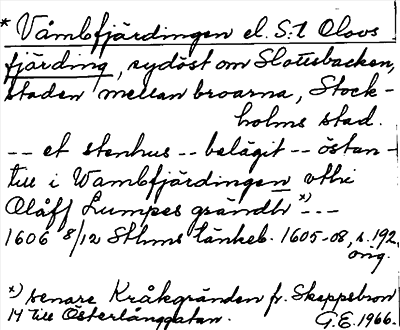 * Våmbfjärdingen el. S:t Olovs
fjärding, sydöst om Slottsbacken,
staden mellan broarna, Stock-
holms stad.
-- et stenhus -- belägit -- östan-
till i Wambfjärdingen vthi
Olåff Lumpes grändh *) --
1606 8/12 Sthms tänkeb. 1605-08, s. 192
orig.
*) senare Kråkgränden fr. Skeppsbron
14 till Österlånggatan. G.E. 1966.